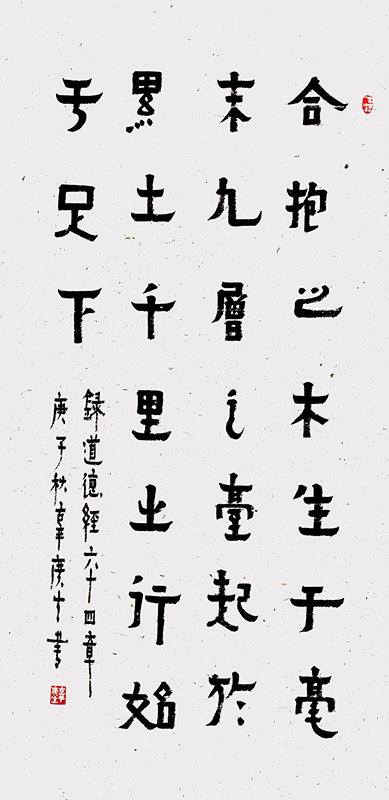 合抱之木生于毫
末九層之臺起於
累土千里之行始
于足下
録道德經六十四章
庚子秋韋廣才書